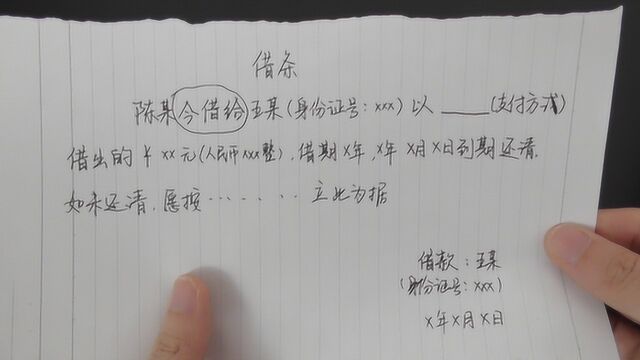 借条
陈某今借给王某(身份证号：xxx)以____(支付方式)
借出的￥xx元(人民币xxx整)，借期X年，X年X月X日到期还清，
如未还清，愿按……立此为据
借款：王某
(身份证号：xxx)
X年X月X日